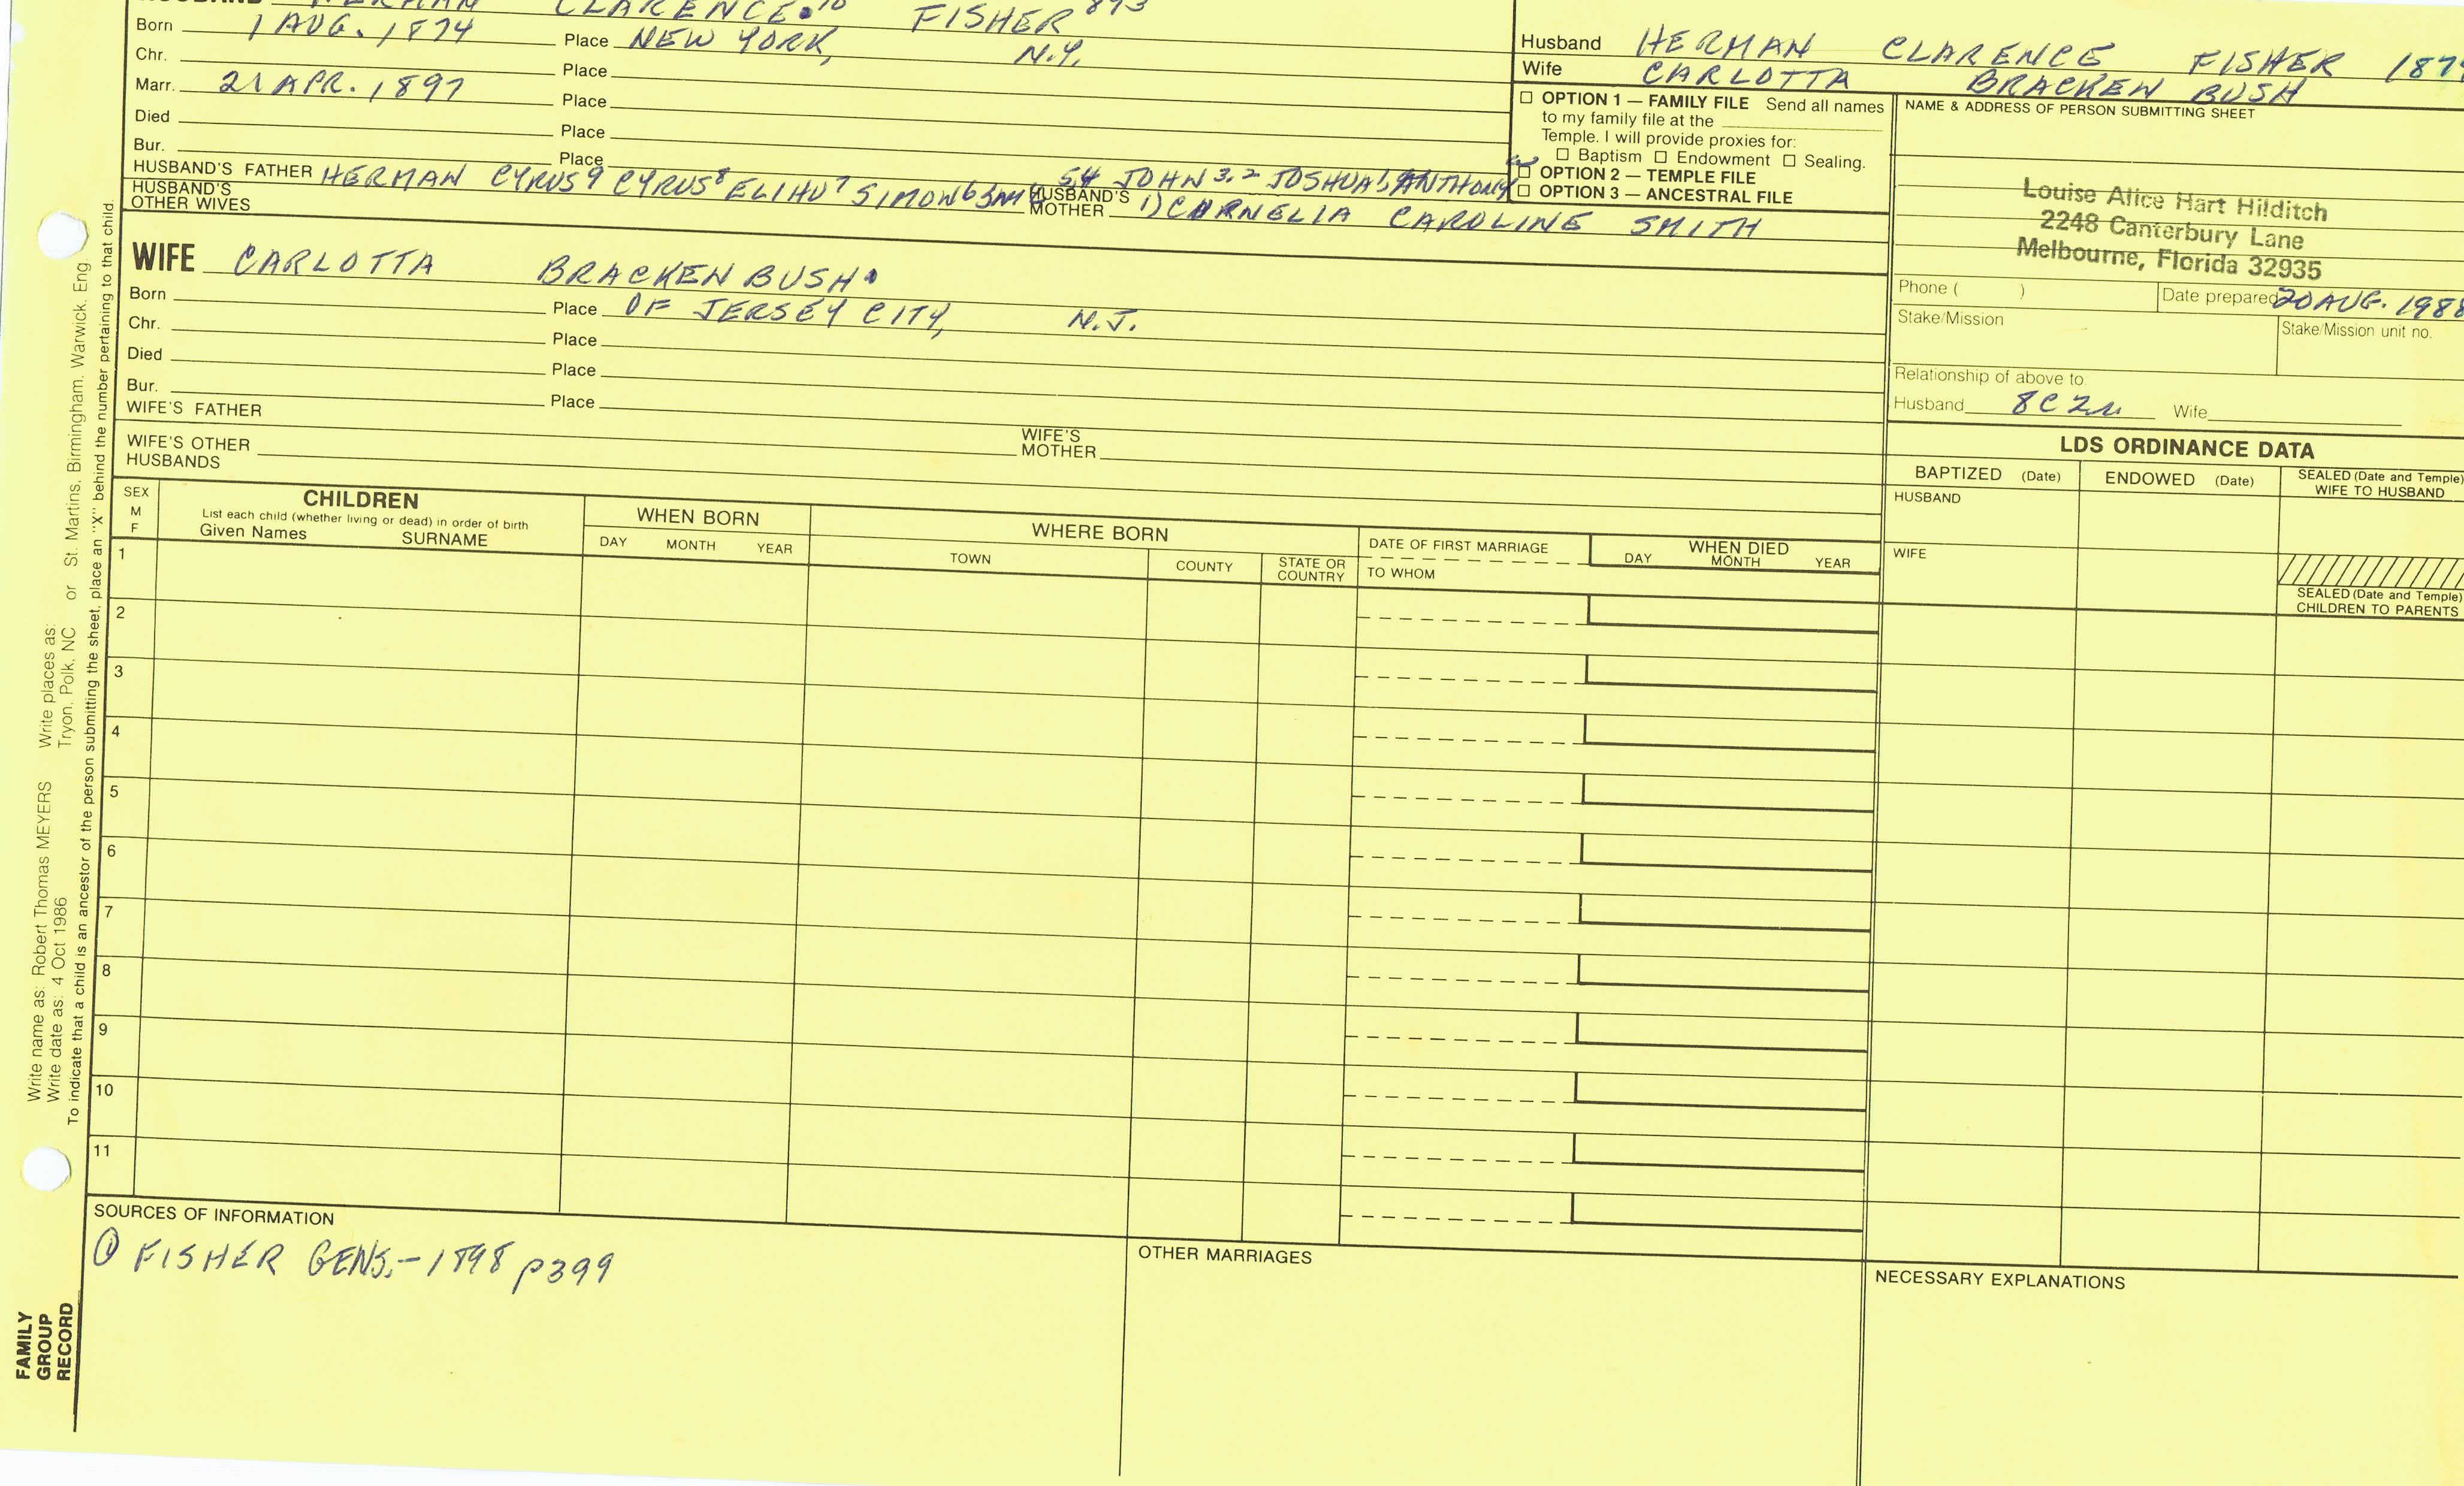 HUSBAND HERMAN CLARENCE 10 FISHER 893
Born 1 AUG. 1874 Place NEW YORK, N.Y.
Chr. Place
Marr. 21 APR. 1897 Place
Died Place
Bur. Place
HUSBAND'S FATHER HERMAN CYRUS9 CYRUS8 ELIHU7 SIMON6 SAM 5,4 JOHN 3,2 JOSHUA1, ANTHONY
HUSBAND'S OTHER WIVES
HUSBAND'S MOTHER 1) CORNELIA CAROLINE SMITH
WIFE CARLOTTA BRACKEN BUSH
Born Place OF JERSEY CITY, N.J.
Chr. Place
Died Place
Bur. Place
WIFE'S FATHER
WIFE'S MOTHER
WIFE'S OTHER HUSBANDS
Husband HERMAN CLARENCE FISHER 1874
Wife CARLOTTA BRACKEN BUSH
☐ OPTION 1 — FAMILY FILE Send all names
to my family file at the
Temple. I will provide proxies for:
☐ Baptism ☐ Endowment ☐ Sealing.
☐ OPTION 2 — TEMPLE FILE
☐ OPTION 3 — ANCESTRAL FILE
NAME & ADDRESS OF PERSON SUBMITTING SHEET
Louise Alice Hart Hilditch
2248 Canterbury Lane
Melbourne, Florida 32935
Phone ( ) Date prepared 20 AUG. 1988
Stake/Mission Stake/Mission unit no.
Relationship of above to:
Husband 8C2R Wife
LDS ORDINANCE DATA
BAPTIZED (Date) ENDOWED (Date) SEALED (Date and Temple)
WIFE TO HUSBAND
HUSBAND
WIFE
SEALED (Date and Temple)
CHILDREN TO PARENTS
SEX
M
F
CHILDREN
List each child (whether living or dead) in order of birth
Given Names SURNAME
WHEN BORN
DAY MONTH YEAR
WHERE BORN
TOWN COUNTY STATE OR COUNTRY
DATE OF FIRST MARRIAGE
TO WHOM
WHEN DIED
DAY MONTH YEAR
1
2
3
4
5
6
7
8
9
10
11
SOURCES OF INFORMATION
① FISHER GENS.-1898 p399
OTHER MARRIAGES
NECESSARY EXPLANATIONS
Write name as: Robert Thomas MEYERS Write places as:
Write date as: 4 Oct 1986 Tryon, Polk, NC or St. Martins, Birmingham, Warwick, Eng.
To indicate that a child is an ancestor of the person submitting the sheet, place an "X" behind the number pertaining to that child.
FAMILY
GROUP
RECORD